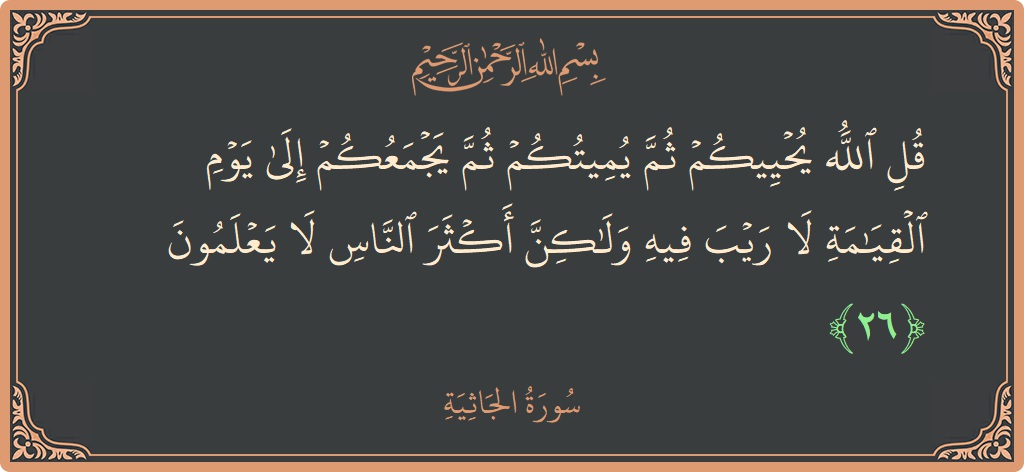 بِسْمِ اللهِ الرَّحْمٰنِ الرَّحِيْمِ
قُلِ ٱللَّهُ يُحۡيِيكُمۡ ثُمَّ يُمِيتُكُمۡ ثُمَّ يَجۡمَعُكُمۡ إِلَىٰ يَوۡمِ
ٱلۡقِيَٰمَةِ لَا رَيۡبَ فِيهِ وَلَٰكِنَّ أَكۡثَرَ ٱلنَّاسِ لَا يَعۡلَمُونَ
﴿٢٦﴾
سُورَةُ الجَاثِيَةِ